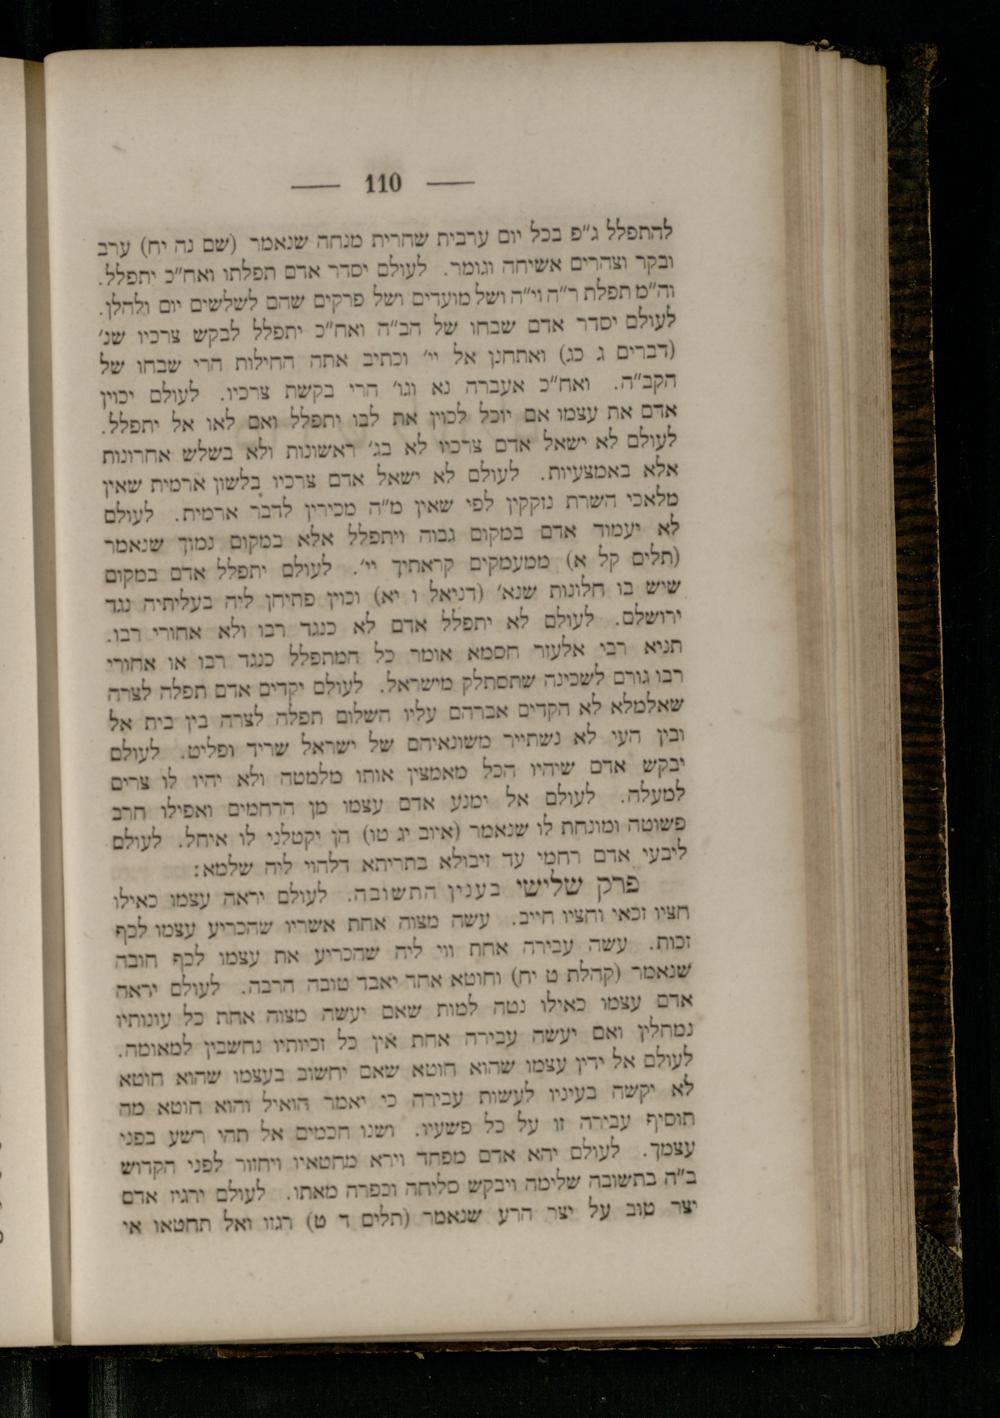 — 110 —
להתפלל ג״פ בכל יום ערבית שחרית מנחה שנאמר (שם נה יח) ערב
ובקר וצהרים אשיחה וגומר. לעולם יסדר אדם תפלתו ואח״כ יתפלל.
וה״מ תפלת ר״ה וי״ה ושל מועדים ושל פרקים שהם לשלשים יום ולהלן.
לעולם יסדר אדם שבחו של הב״ה ואח״כ יתפלל לבקש צרכיו שנ׳
(דברים ג כג) ואתחנן אל יי׳ וכתיב אתה החילות הרי שבחו של
הקב״ה. ואח״כ אעברה נא וגו׳ הרי בקשת צרכיו. לעולם יכוין
אדם את עצמו אם יוכל לכוין את לבו יתפלל ואם לאו אל יתפלל.
לעולם לא ישאל אדם צרכיו לא בג׳ ראשונות ולא בשלש אחרונות
אלא באמצעיות. לעולם לא ישאל אדם צרכיו בלשון ארמית שאין
מלאכי השרת נזקקין לפי שאין מ״ה מכירין לדבר ארמית. לעולם
לא יעמוד אדם במקום גבוה ויתפלל אלא במקום נמוך שנאמר
(תלים קל א) ממעמקים קראתיך יי׳. לעולם יתפלל אדם במקום
שיש בו חלונות שנא׳ (דניאל ו יא) וכוין פתיחן ליה בעליתיה נגד
ירושלם. לעולם לא יתפלל אדם לא כנגד רבו ולא אחורי רבו.
תניא רבי אלעזר חסמא אומר כל המתפלל כנגד רבו או אחורי
רבו גורם לשכינה שתסתלק מישראל. לעולם יקדים אדם תפלה לצרה
שאלמלא לא הקדים אברהם עליו השלום תפלה לצרה בין בית אל
ובין העי לא נשתייר משונאיהם של ישראל שריד ופליט. לעולם
יבקש אדם שיהיו הכל מאמצין אותו מלמטה ולא יהיו לו צרים
למעלה. לעולם אל ימנע אדם עצמו מן הרחמים ואפילו חרב
פשוטה ומונחת לו שנאמר (איוב יג טו) הן יקטלני לו איחל. לעולם
ליבעי אדם רחמי עד זיבולא בתריתא דלהוי ליה שלמא:
פרק שלישי בענין התשובה. לעולם יראה עצמו כאילו
חציו זכאי וחציו חייב. עשה מצוה אחת אשריו שהכריע עצמו לכף
זכות. עשה עבירה אחת ווי ליה שהכריע את עצמו לכף חובה
שנאמר (קהלת ט יח) וחוטא אחד יאבד טובה הרבה. לעולם יראה
אדם עצמו כאילו נטה למות שאם יעשה מצוה אחת כל עונותיו
נמחלין ואם יעשה עבירה אחת אין כל זכיותיו נחשבין למאומה.
לעולם אל ידין עצמו שהוא חוטא שאם יחשוב בעצמו שהוא חוטא
לא יקשה בעיניו לעשות עבירה כי יאמר הואיל והוא חוטא מה
תוסיף עבירה זו על כל פשעיו. ושנו חכמים אל תהי רשע בפני
עצמך. לעולם יהא אדם מפחד וירא מחטאיו ויחזור לפני הקדוש
ב״ה בתשובה שלימה ויבקש סליחה וכפרה מאתו. לעולם ירגיז אדם
יצר טוב על יצר הרע שנאמר (תלים ד ט) רגזו ואל תחטאו אי